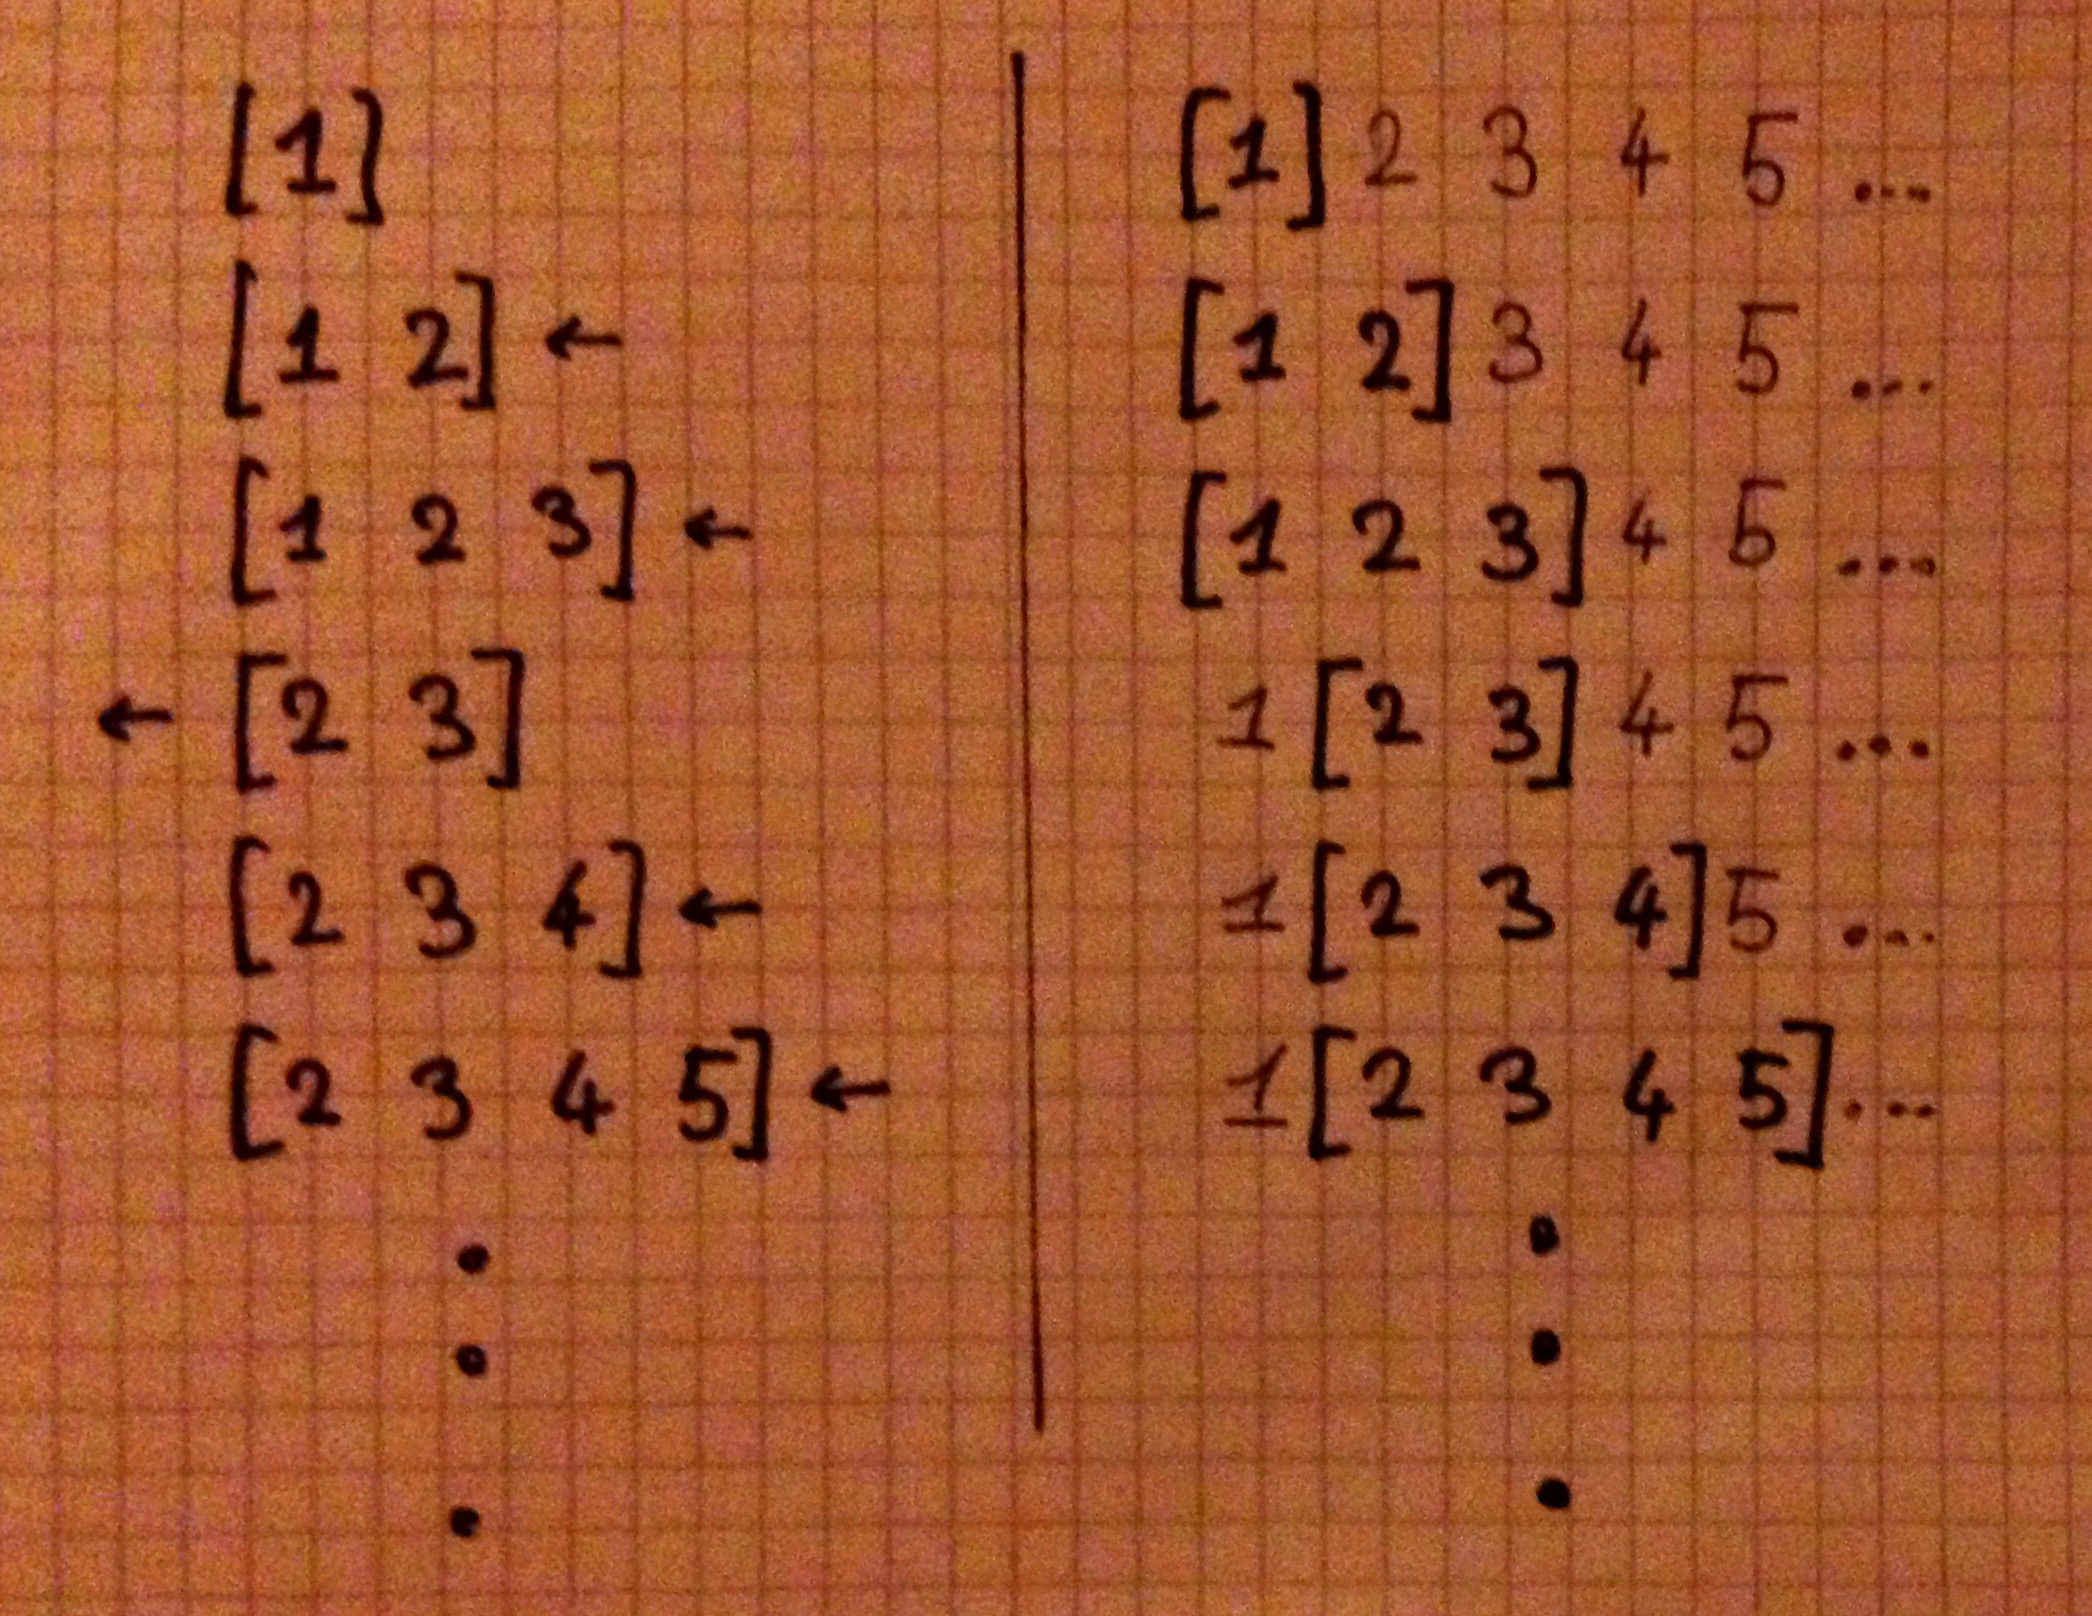 [1]
[1 2] ←
[1 2 3] ←
← [2 3]
[2 3 4] ←
[2 3 4 5] ←
.
.
.
[1] 2 3 4 5 ...
[1 2] 3 4 5 ...
[1 2 3] 4 5 ...
1 [2 3] 4 5 ...
1 [2 3 4] 5 ...
1 [2 3 4 5] ...
.
.
.